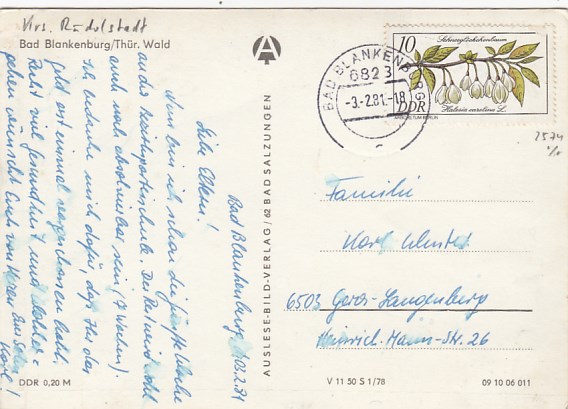 Krs. Rudolstadt
Bad Blankenburg/Thür. Wald
Bad Blankenburg, d. 3.2.81
Liebe Eltern!
Nun bin ich schon die fünfte Woche
an der Kampfsportschule. Der Rest wird wohl
auch noch absolvierbar sein (7 Wochen).
Ich bedanke mich dafür, daß Ihr das
Geld erst einmal vorgeschossen habt.
Recht viel Gesundheit und
wünscht Euch von Herzen Euer Sohn
Karl!
DDR 0,20 M
AUSLESE-BILD-VERLAG / 62 BAD SALZUNGEN
BAD BLANKENBURG
6823
-3.-2.81.-18
c
10
DDR
Schneeglöckchenbaum
Halesia carolina L.
ARBORETUM BERLIN
2574
Familie
Karl
6503 Gera-Langenberg
Heinrich-Mann-Str. 26
V 11 50 S 1/78
09 10 06 011